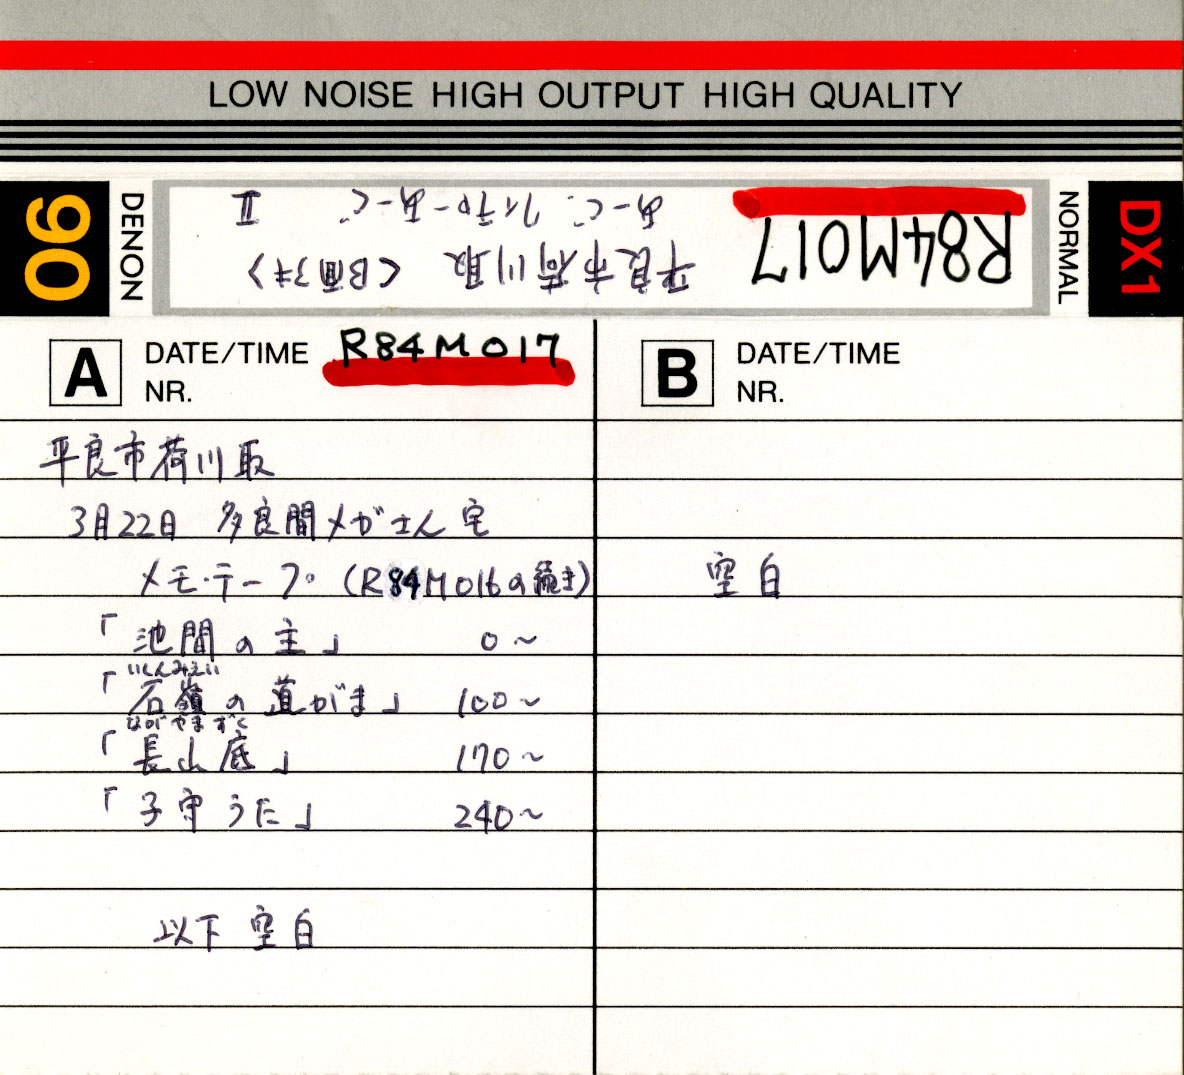 LOW NOISE HIGH OUTPUT HIGH QUALITY
DX1
NORMAL
R84M017
平良市荷川取
DENON
90
A DATE/TIME R84M017
NR.
平良市荷川取
3月22日 多良間メガさん宅
メモ・テープ (R84M016の続き)
「池間の主」 0~
いしんみぇい
「石嶺の道がま」 100~
ながやまずく
「長山底」 170~
「子守うた」 240~
以下 空白
B DATE/TIME
NR.
空白